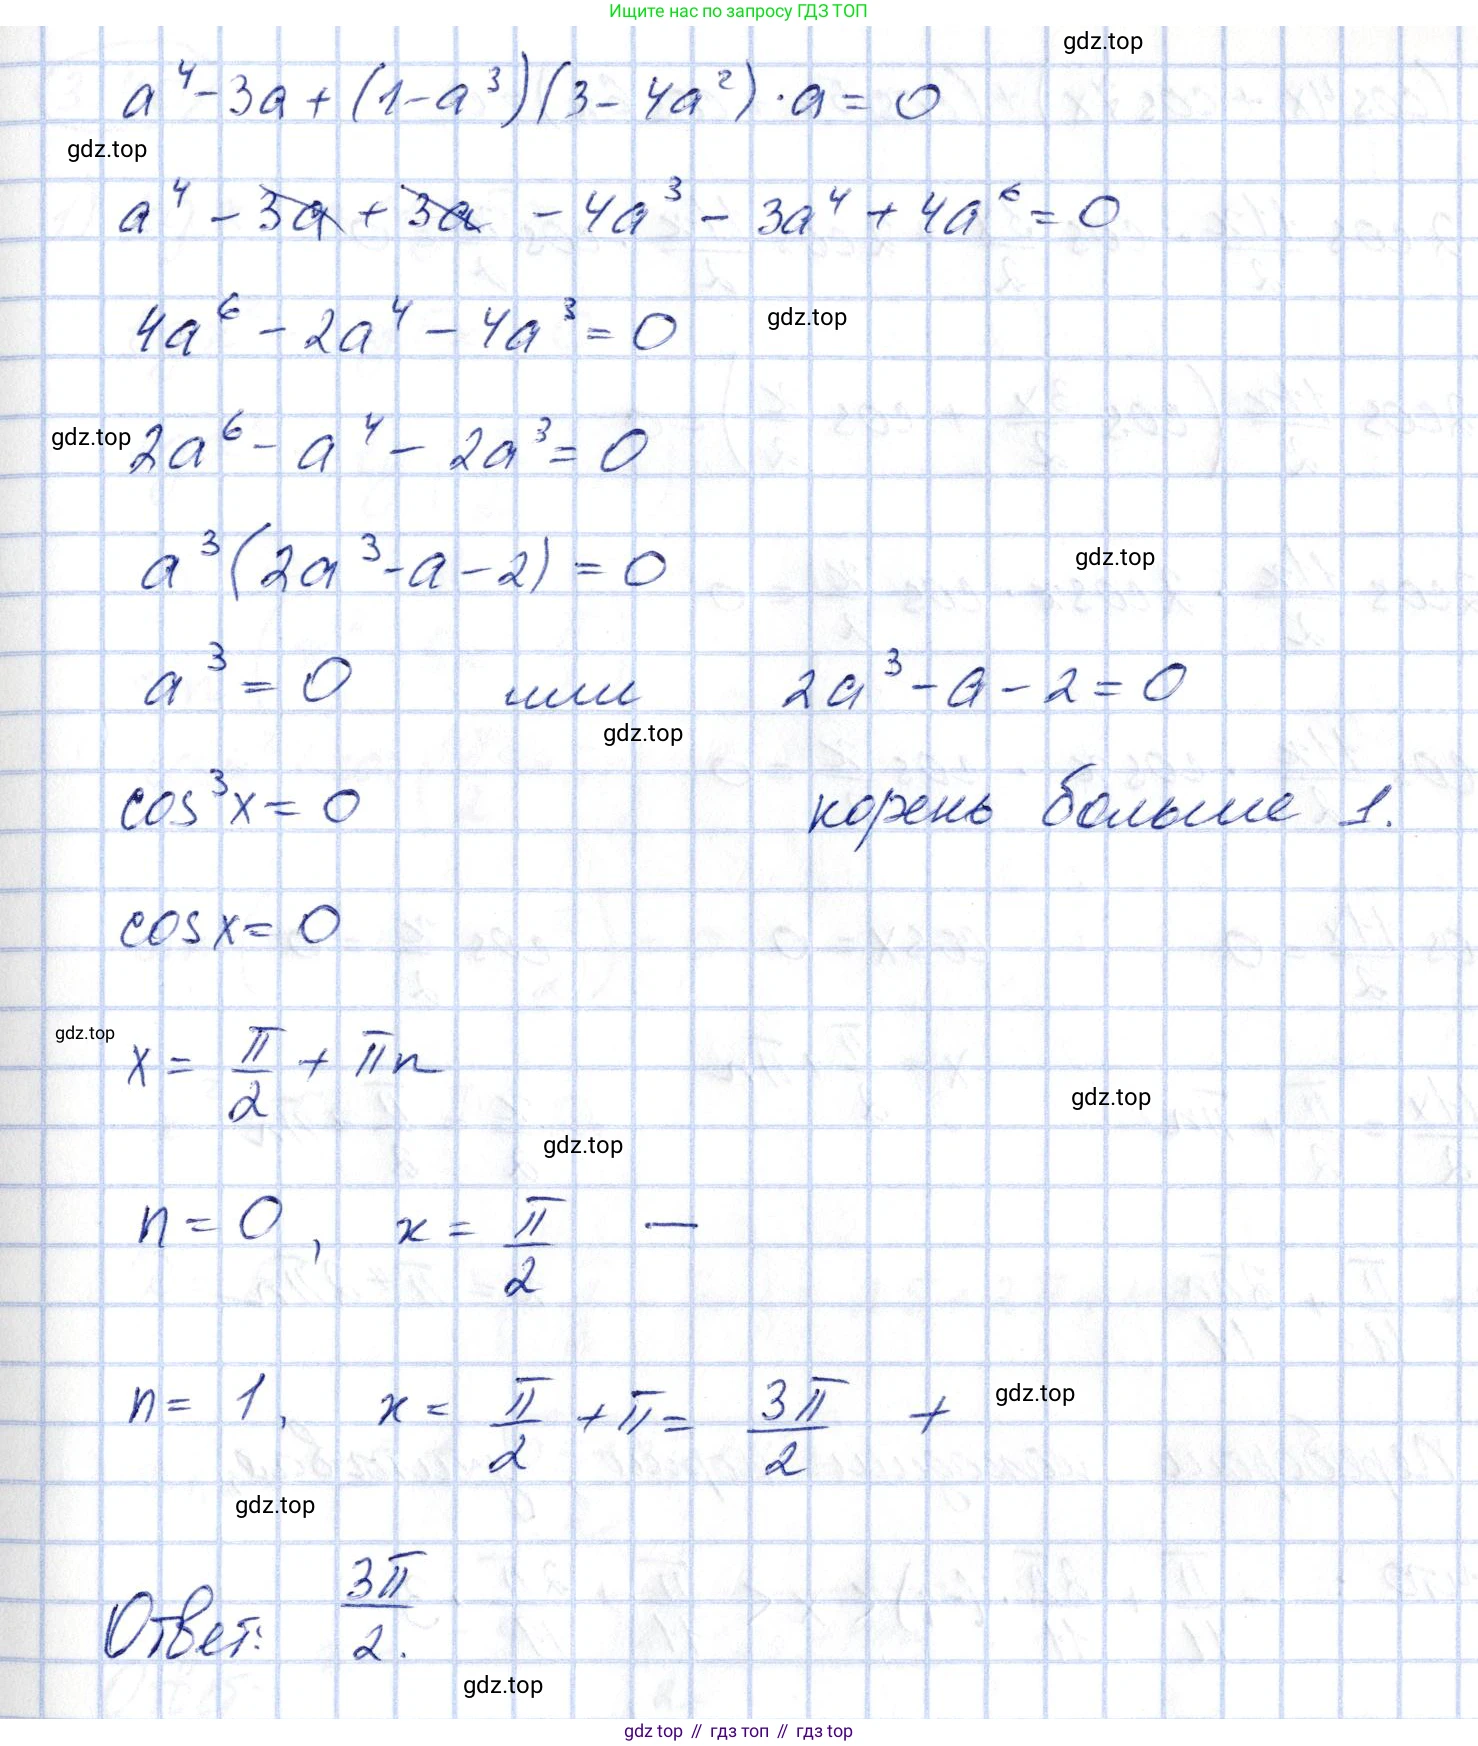 Ищите нас по запросу ГДЗ ТОП
gdz.top
a⁴ - 3a + (1 - a³)(3 - 4a²) · a = 0
gdz.top
a⁴ - 3a + 3a - 4a³ - 3a⁴ + 4a⁶ = 0
4a⁶ - 2a⁴ - 4a³ = 0
gdz.top
gdz.top
2a⁶ - a⁴ - 2a³ = 0
a³(2a³ - a - 2) = 0
gdz.top
a³ = 0 или 2a³ - a - 2 = 0
gdz.top
cos³x = 0 корень больше 1.
cos x = 0
gdz.top
x = π/2 + πn
gdz.top
gdz.top
n = 0, x = π/2 —
n = 1, x = π/2 + π = 3π/2 +
gdz.top
gdz.top
Ответ: 3π/2.
gdz.top
gdz top // гдз топ // гдз top